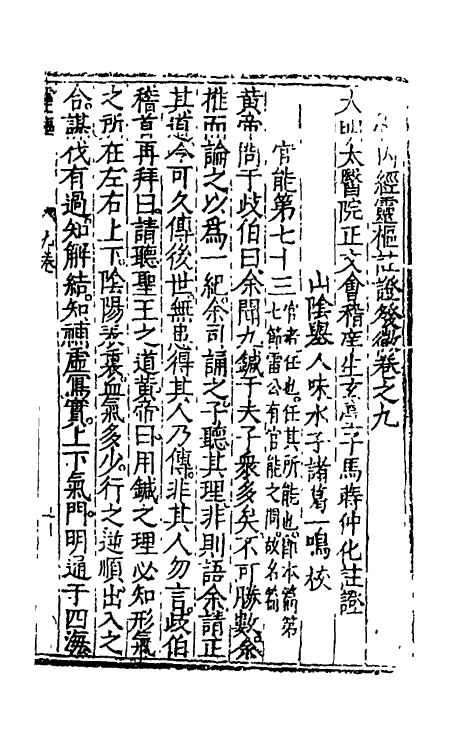 內經靈樞註證發微卷之九
大明太醫院正文會稽庠生玄臺子馬蒔仲化註證
山陰舉人味水子諸葛一鳴校
官能第七十三官者任也任其所能也節本篇第
七節雷公有官能之問故名篇
黃帝問于歧伯曰余聞九鍼于夫子衆多矣不可勝數余
推而論之以爲一紀余司誦之子聽其理非則語余請正
其道令可久傳後世無患得其人乃傳非其人勿言歧伯
稽首再拜曰請聽聖王之道黃帝曰用鍼之理必知形氣
之所在左右上下陰陽表裏血氣多少行之逆順出入之
合謀伐有過知解結知補虛寫實上下氣門明通于四海
九卷